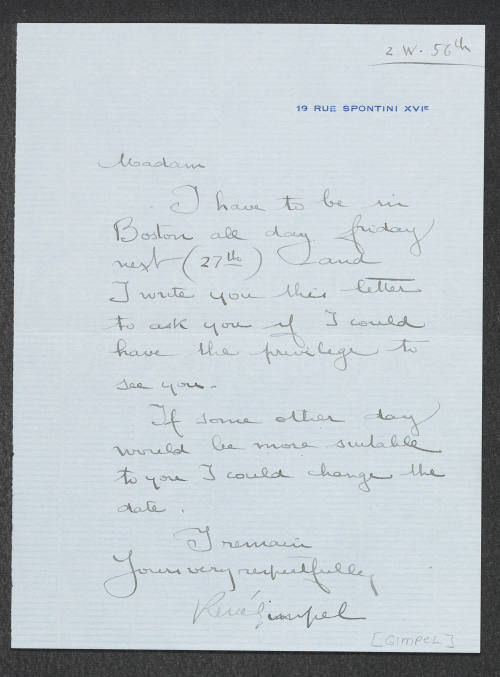 2 W. 56th
19 RUE SPONTINI XVIE
Madam
I have to be in
Boston all day friday
next (27th) and
I write you this letter
to ask you if I could
have the privilege to
see you.
If some other day
would be more suitable
to you I could change the
date.
I remain
Yours very respectfully
René Gimpel
[GIMPEL]